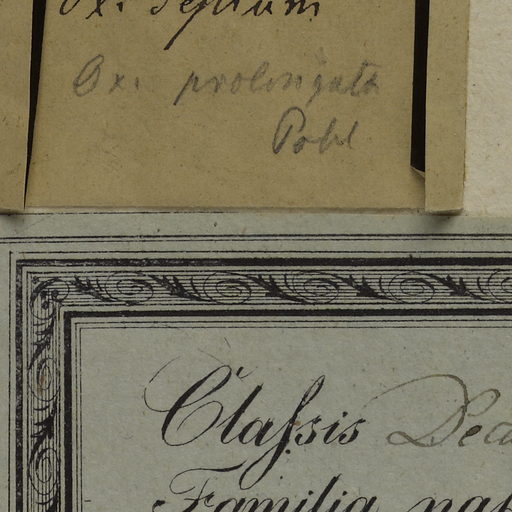 Ox. septium
Ox. prolongata
Pohl
Claſsis Deca
Familia nat